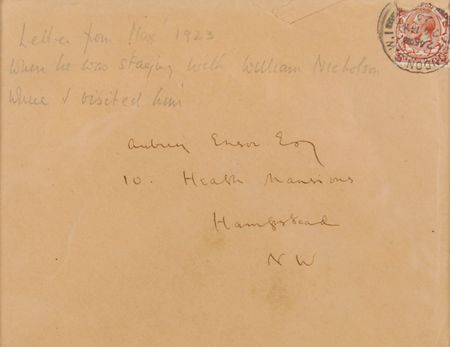 Letter from Max 1923
When he was staying with William Nicholson
where I visited him
Aubrey Ensor Esq
10. Heath Mansions
Hampstead
N W